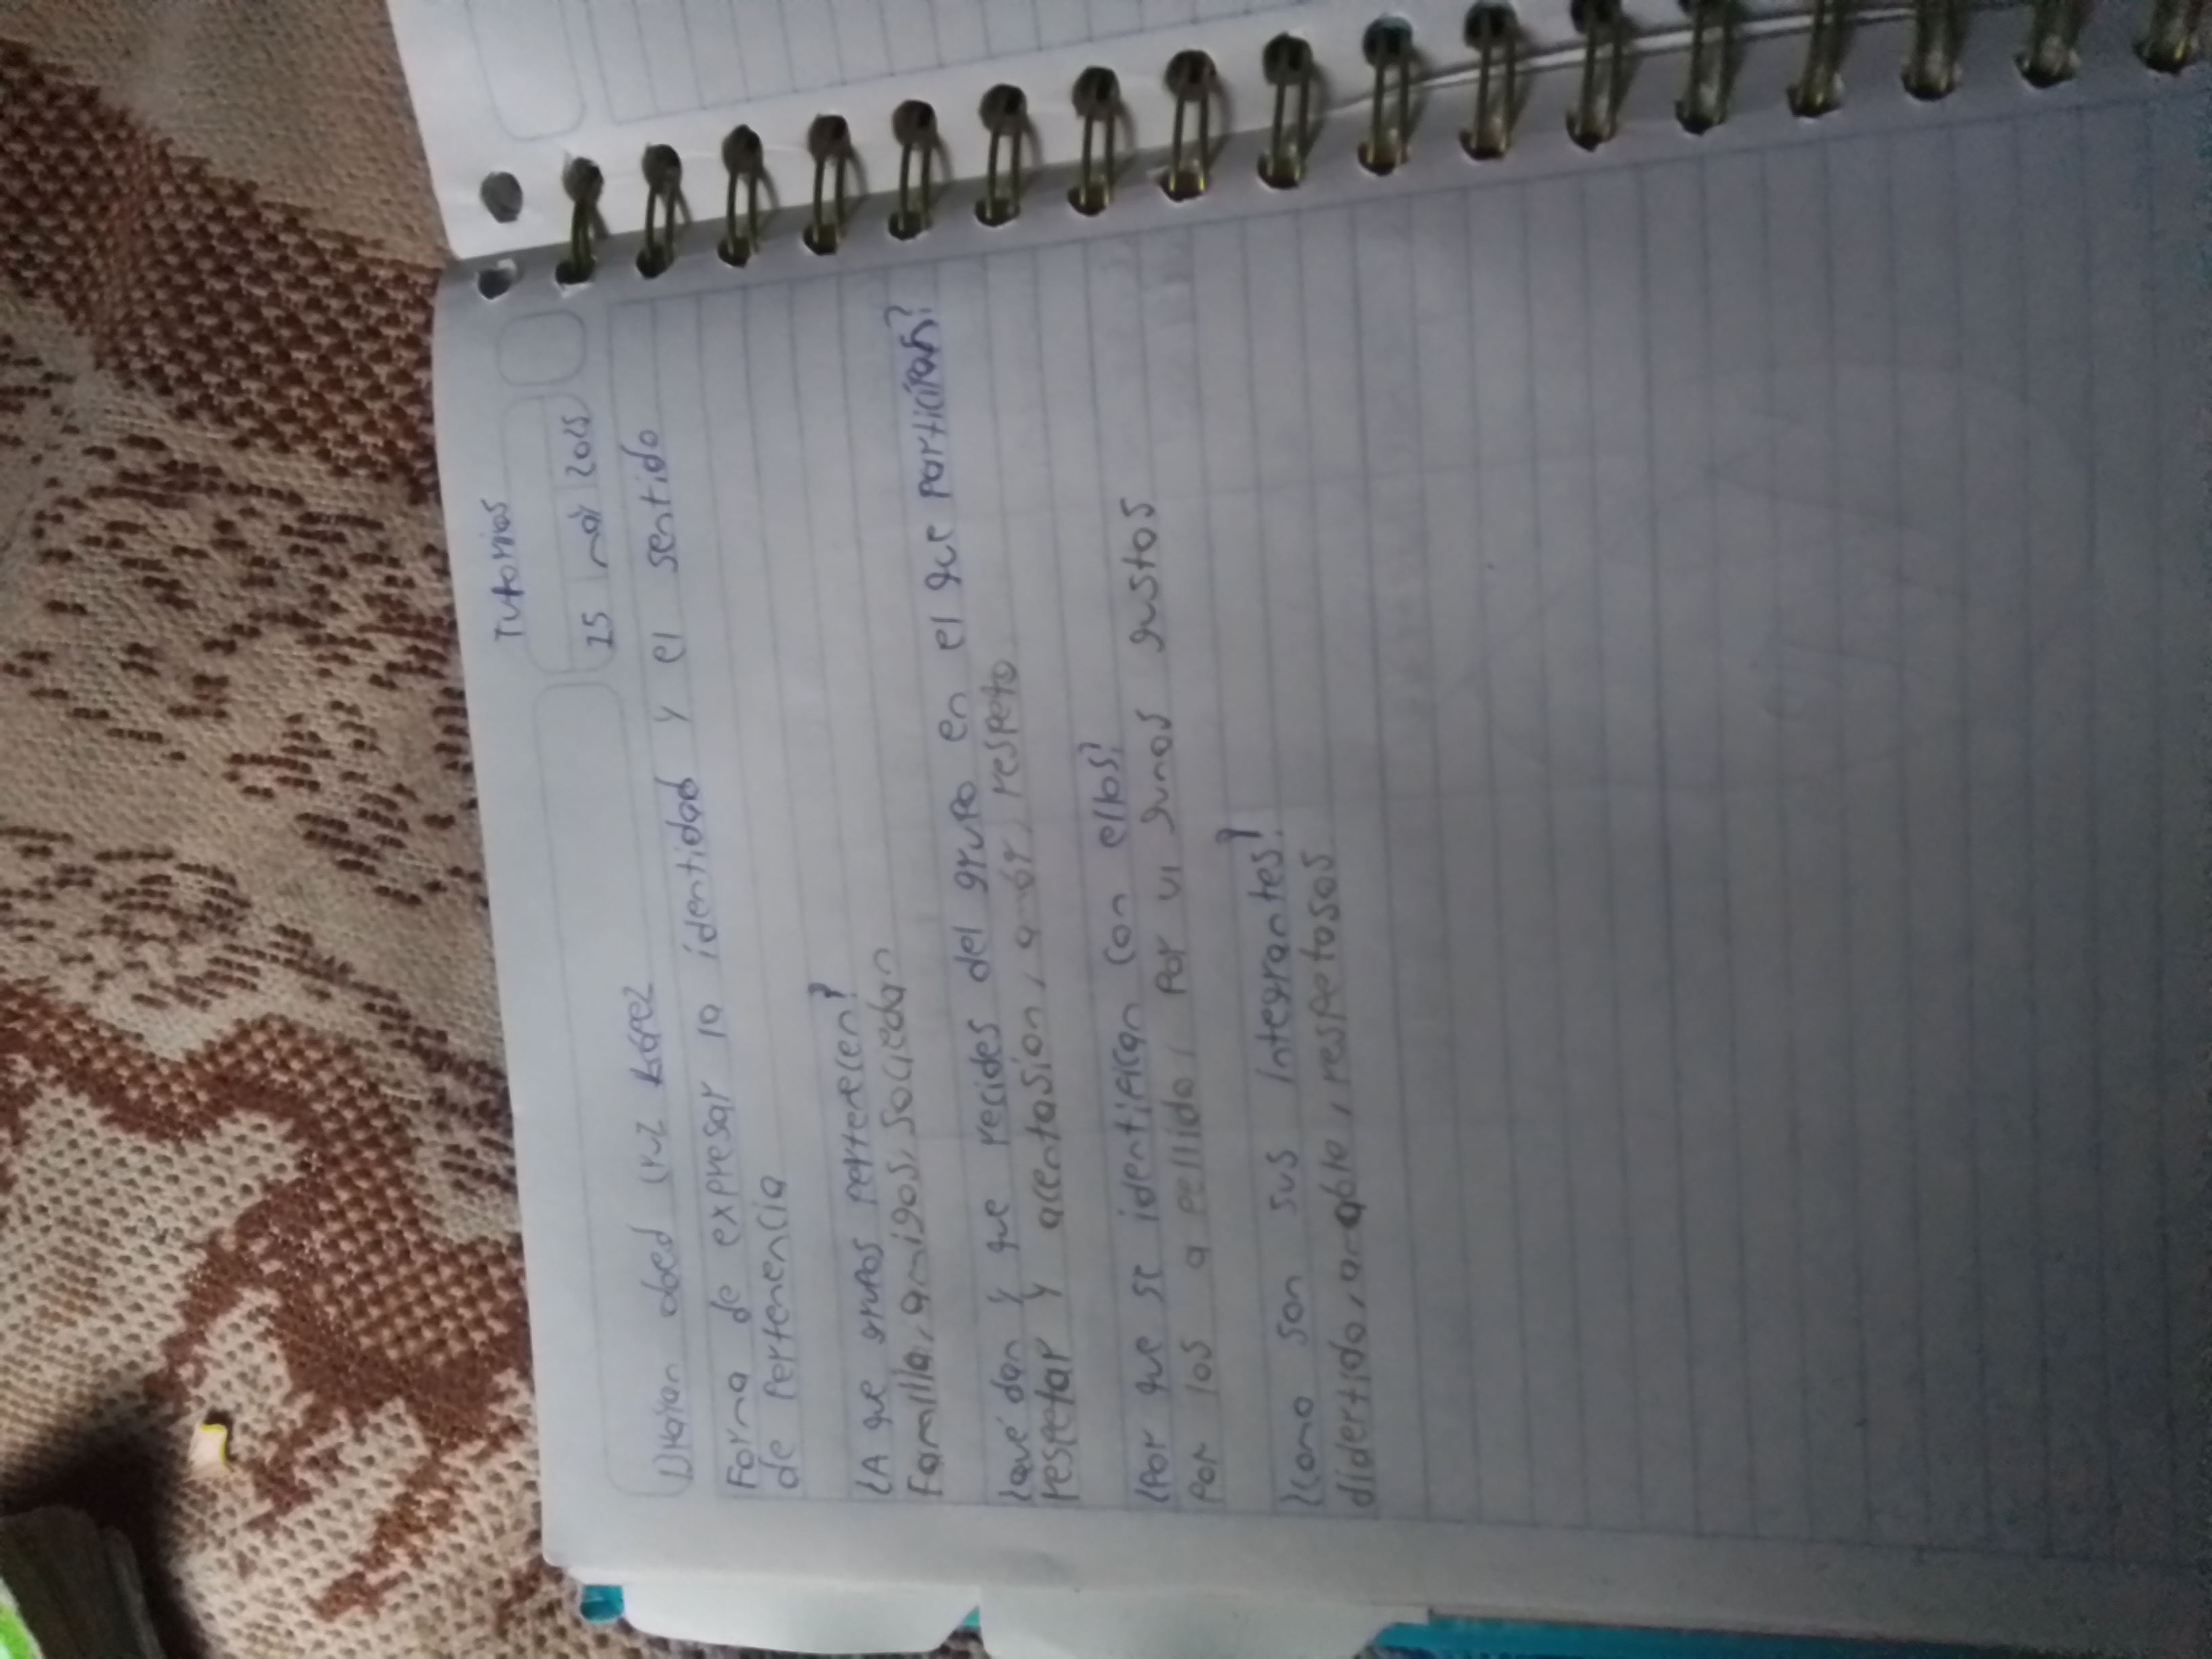 Tutorias
25 may 2015
obed
Forma de expresar la identidad y el sentido
de pertenencia
¿A que grupos pertenecen?
Familia, amigos, sociedan
¿Qué dan y que recides del grupo en el que participan?
respetar y acentasion, amór, respeto
¿Por que se identifican con ellos?
Por los a pellido, por gustos
¿como son sus integrantes?
didertido, amable, respetosos